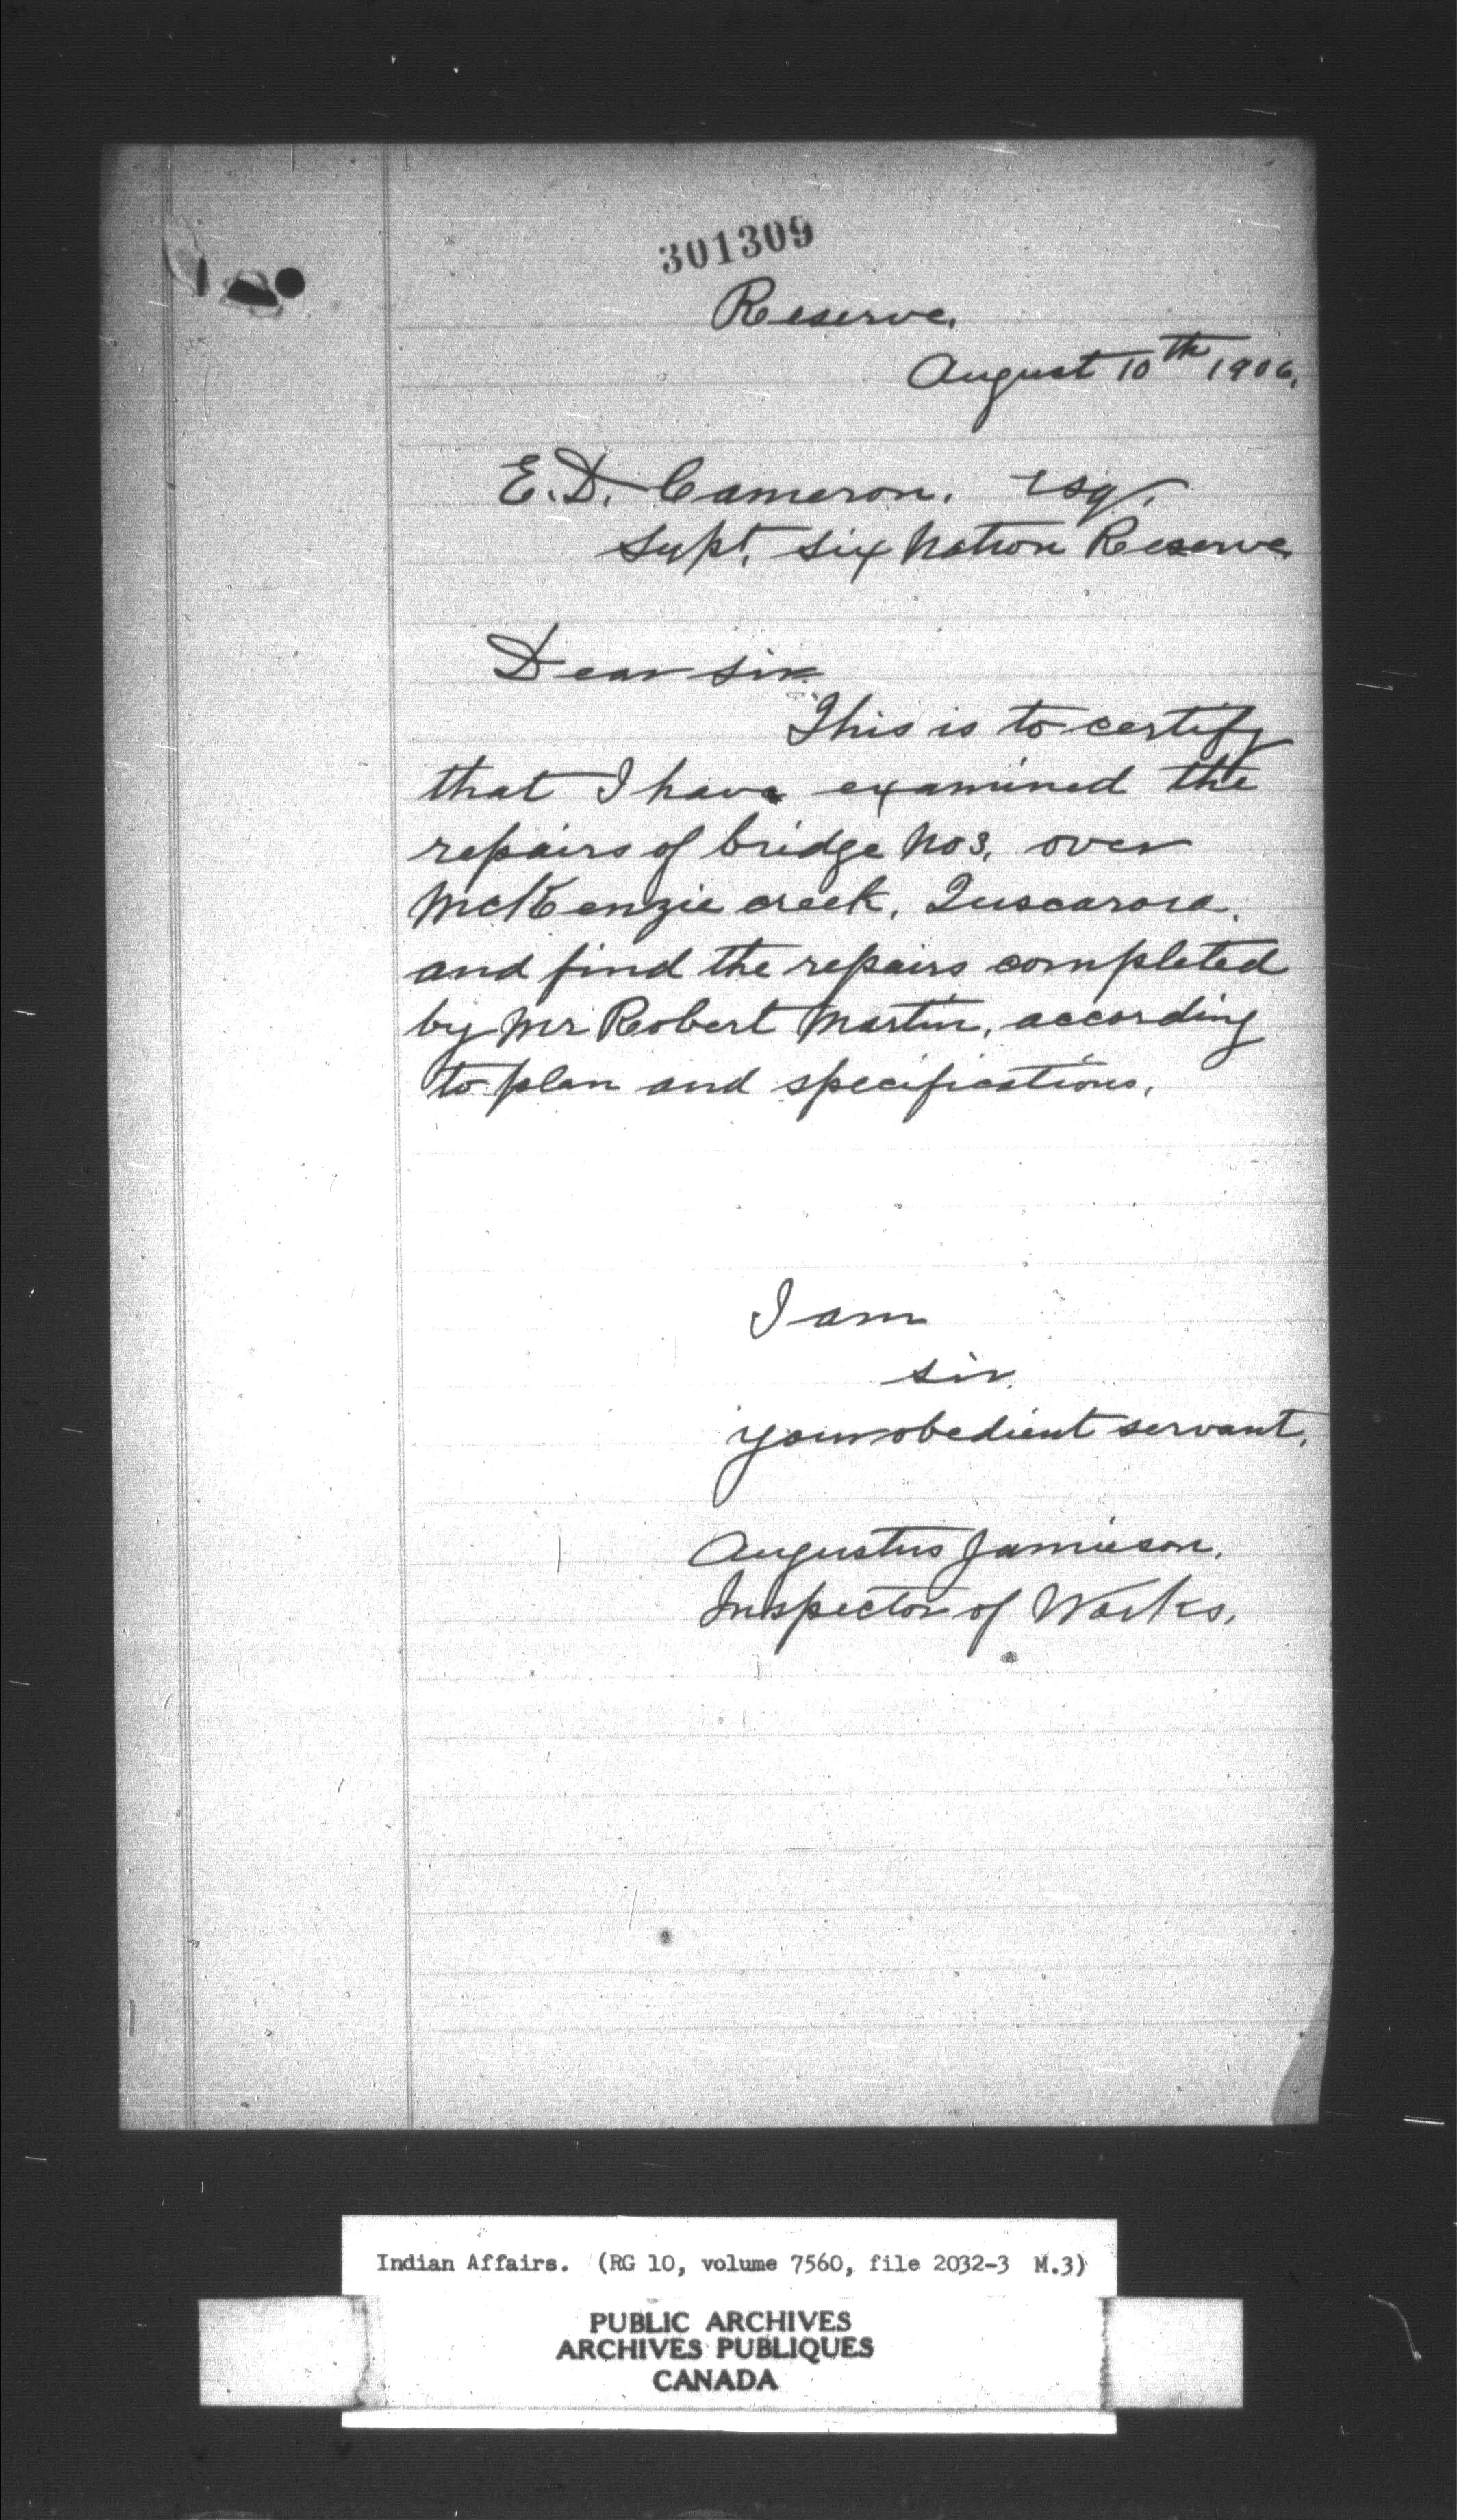 301309
Reserve.
August 10th 1906.
E.D. Cameron. Esq.
Supt. Six Nation Reserve
Dear Sir
This is to certify
that I have examined the
repairs of bridge No 3. over
McKenzie creek, Tuscarora.
and find the repairs completed
by Mr Robert Martin, according
to plan and specifications.
I am
sir.
your obedient servant.
Augustus Jamieson.
Inspector of Works.
Indian Affairs. (RG 10, volume 7560, file 2032-3 M.3)
PUBLIC ARCHIVES
ARCHIVES PUBLIQUES
CANADA